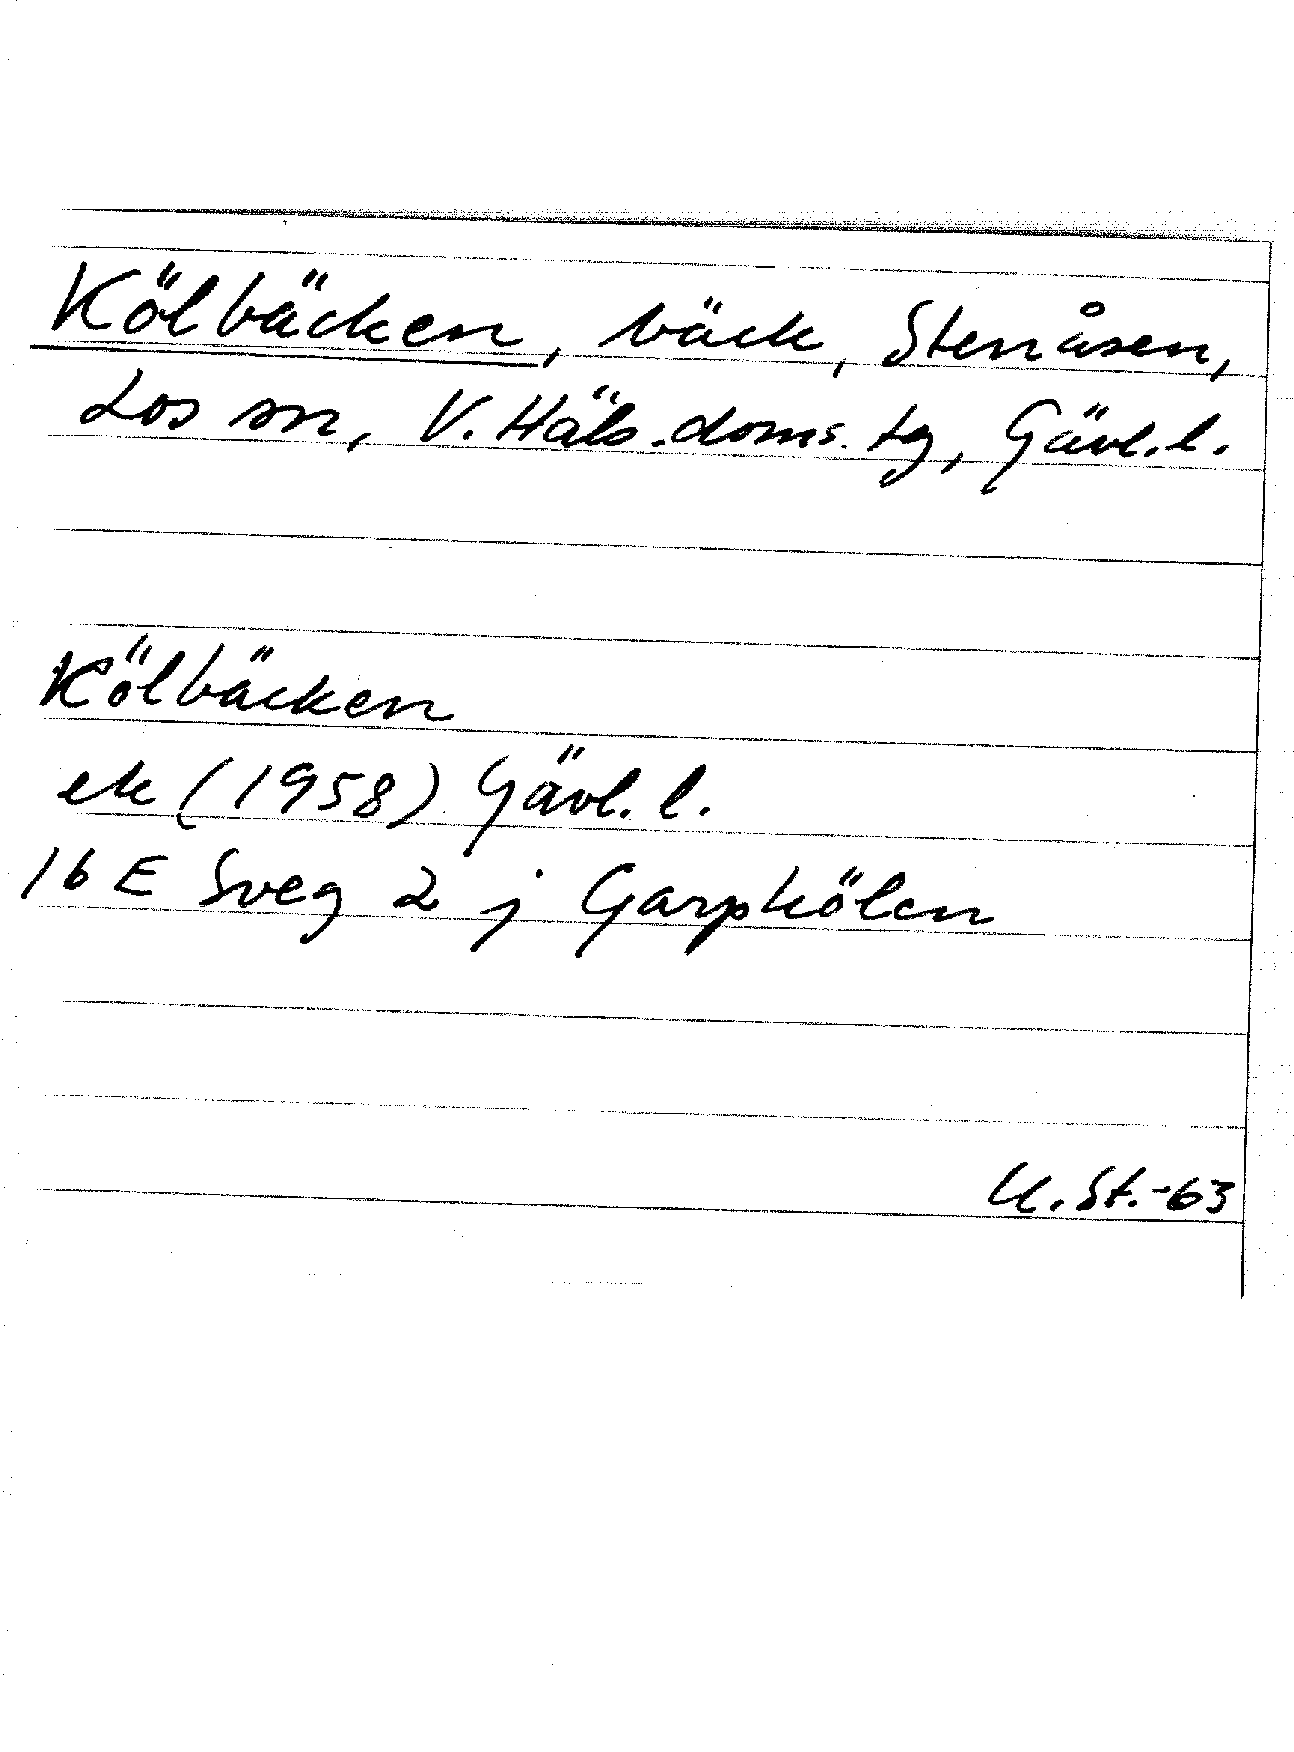 Kölbäcken, bäck, Stenåsen,
Los sn, V. Häls. doms. tg, Gävl. l.
Kölbäcken
ek (1958) Gävl. l.
16 E Sveg 2 j Garpkölen
U. St. -63